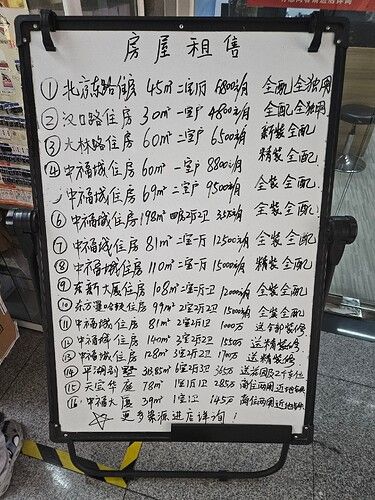 房屋租售
① 北京东路住房 45m² 二室1厅 6800元/月 全配全独用
② 汉口路住房 30m² 一室户 4800元/月 全配全独用
③ 大林路住房 60m² 二室户 6500元/月 新装全配
④ 中福城住房 60m² 一室户 8800元/月 精装全配
中福城住房 69m² 二室户 9500元/月 全装全配
⑥ 中福城住房 198m² 四房2厅2卫 3.5万/月 全装全配
⑦ 中福城住房 81m² 二室一厅 12500元/月 全装全配
⑧ 中福城住房 110m² 二室一厅 15000元/月 精装全配
⑨ 东新大厦住房 108m² 二室1厅1卫 12000/月 全装全配
⑩ 东方 99m² 2室2厅2卫 15000/月 全装全配
⑪ 中福城住房 81m² 2室2厅1卫 1000万 送全部装修
⑫ 中福城住房 140m² 3室2厅2卫 1550万 送精装修
⑬ 中福城住房 128m² 3室2厅2卫 1700万 送精装修
⑭ 平湖别墅 6室2厅3卫 365万 送花园及2个车位
⑮ 天宝华座 78m² 1室1厅1卫 285万 商住两用近地铁
⑯ 中福大厦 39m² 1室1卫 145万 商住两用近地铁
☆ 更多房源进店详询!